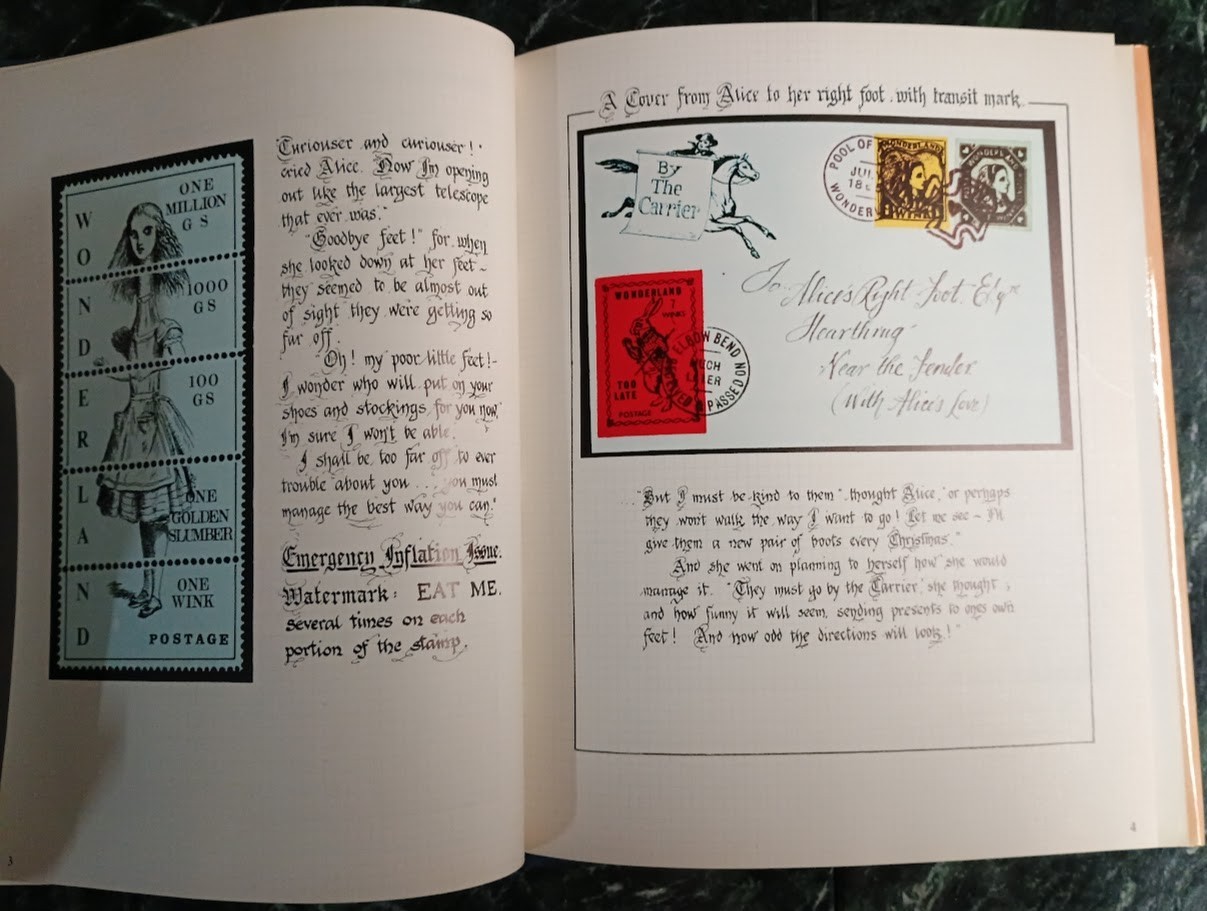 WONDERLAND
ONE
MILLION
G S
1000
GS
100
GS
ONE
GOLDEN
SLUMBER
ONE
WINK
POSTAGE
"Curiouser and curiouser!"
cried Alice. "Now I'm opening
out like the largest telescope
that ever was."
"Goodbye feet!" for when
she looked down at her feet ~
they seemed to be almost out
of sight they were getting so
far off.
"Oh! my poor little feet!-
I wonder who will put on your
shoes and stockings for you now"
I'm sure I won't be able.
I shall be too far off to ever
trouble about you . . . you must
manage the best way you can."
Emergency Inflation Issue.
Watermark: EAT ME.
several times on each
portion of the stamp.
3
A Cover from Alice to her right foot. with transit mark.
By
The
Carrier
POOL OF
JUL
18
WONDER
WONDERLAND
1 WINK
WONDERLAND
WONDERLAND
7
WINKS
TOO
LATE
POSTAGE
ELBOW BEND NO
PASSED
To Alice's Right Foot Esqre
Hearthrug
Near the Fender
(With Alice's Love)
... "But I must be kind to them", thought Alice, "or perhaps
they won't walk the way I want to go! Let me see ~ I'll
give them a new pair of boots every Christmas."
And she went on planning to herself how she would
manage it. "They must go by the Carrier" she thought ;
and how funny it will seem, sending presents to ones own
feet! And how odd the directions will look!"
4